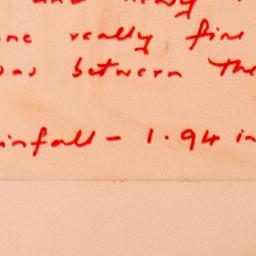 and
one really fine
was between the
infall - 1.94 in